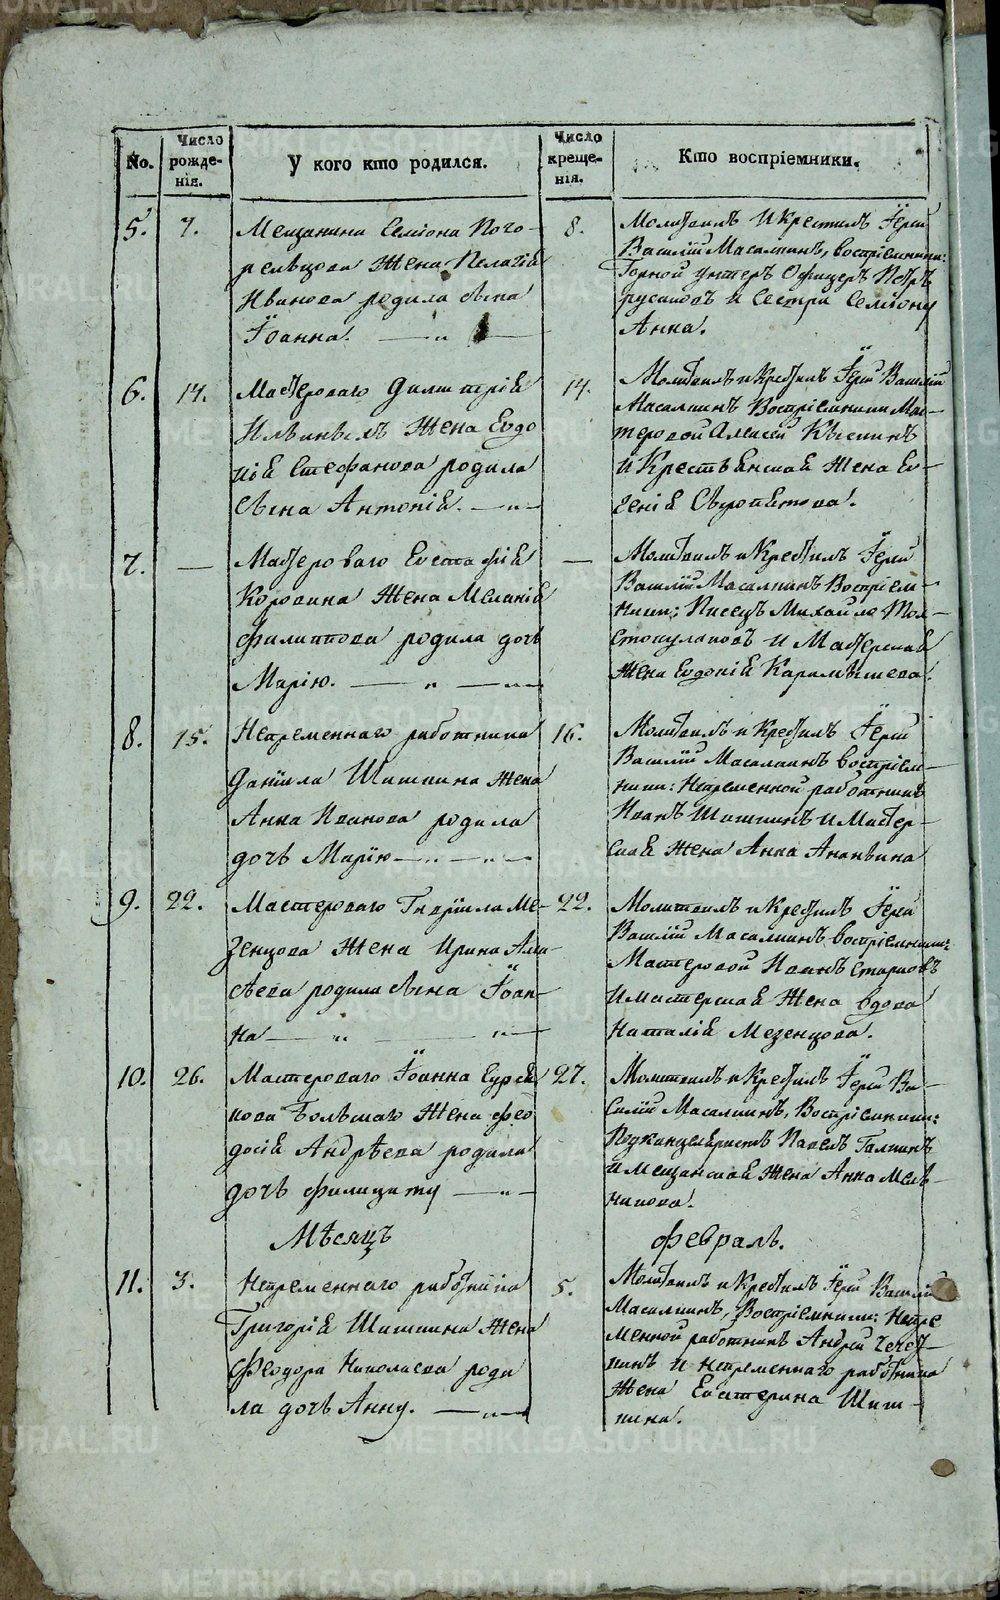 No.
Число рожденія.
У кого кто родился.
Число крещенія.
Кто воспріемники.
5.
7.
Мещанина Семіона Пого-
рельцова жена Пелагія
Иванова родила сына
Іоанна.
8.
Молитвилъ и крестилъ Іерей
Василій Масалкинъ, воспріемники:
Горной унтеръ Офицеръ Петръ
Русановъ и сестра Семіону
Анна.
6.
14.
Мастероваго Димитрія
Ильиныхъ жена Евдо
кія Стефанова родила
сына Антонія.
14.
Молитвилъ и крестилъ Іерей Василій
Масалкинъ Воспріемники Мас-
теровой Алексей
и крестьянская жена Ев-
генія
7.
—
Мастероваго Евстафія
Коровина жена Меланія
Филиппова родила дочь
Марію.
—
Молитвилъ и крестилъ Іерей
Василій Масалкинъ Воспріем-
ники: Писецъ Михайло Тол-
стокулаковъ и Мастерская
жена Евдокія Карамышева.
8.
15.
Непременнаго работника
Даніила Шишкина жена
Анна Иванова родила
дочь Марію
16.
Молитвилъ и крестилъ Іерей
Василій Масалкинъ воспріем-
ники: Непременной работникъ
Иванъ Шишкинъ и Мастер-
ская жена Анна Ананьина
9.
22.
Мастероваго Гавріила Ме-
зенцова жена Ирина Алек
сѣева родила сына Іоан-
на
22.
Молитвилъ и крестилъ Іерей
Василій Масалкинъ воспріемники:
Мастеровой Иванъ Стариковъ
и мастерская жена вдова
Наталія Мезенцова.
10.
26.
Мастероваго Іоанна
кова Большаго жена Фео
досія Андрѣева родила
дочь Филицату
27.
Молитвилъ и крестилъ Іерей Ва-
силій Масалкинъ, Воспріемники:
Подканцеляристъ Павелъ Галкинъ
и мещанская жена Анна Мель-
никова.
Мѣсяцъ
февраль.
11.
3.
Непременнаго работника
Григорія Шишкина жена
Феодора Николаева роди
ла дочь Анну.
5.
Молитвилъ и крестилъ Іерей Василій
Масалкинъ, Воспріемники: Непре
менной работникъ Андрей
и непременнаго работника
жена Екатерина Шиш-
кина.
METRIKI.GASO-URAL.RU